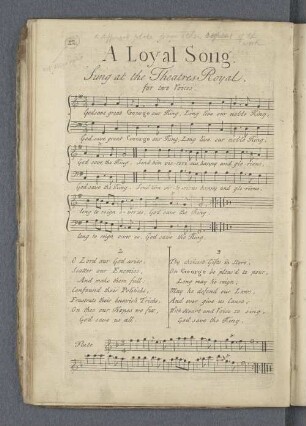 22
A different plate from other copies of the
A Loyal Song.
Sung at the Theatres Royal.
for two Voices
God save great George our King, Long live our noble King,
God save great George our King, Long live our noble King,
God save the King. Send him victorious happy and glorious,
God save the King. Send him victorious happy and glorious,
long to reign over us God save the King.
long to reign over us God save the King.
2
O Lord our God arise,
Scatter our Enemies,
And make them fall
Confound their Politicks,
Frustrate their knavish Tricks,
On thee our Hopes we fix,
God save us all
3
Thy choicest Gifts in store,
On George be pleas'd to pour,
Long may he reign,
May he defend our Laws,
And ever give us Cause,
With heart and Voice to sing,
God save the King.
Flute